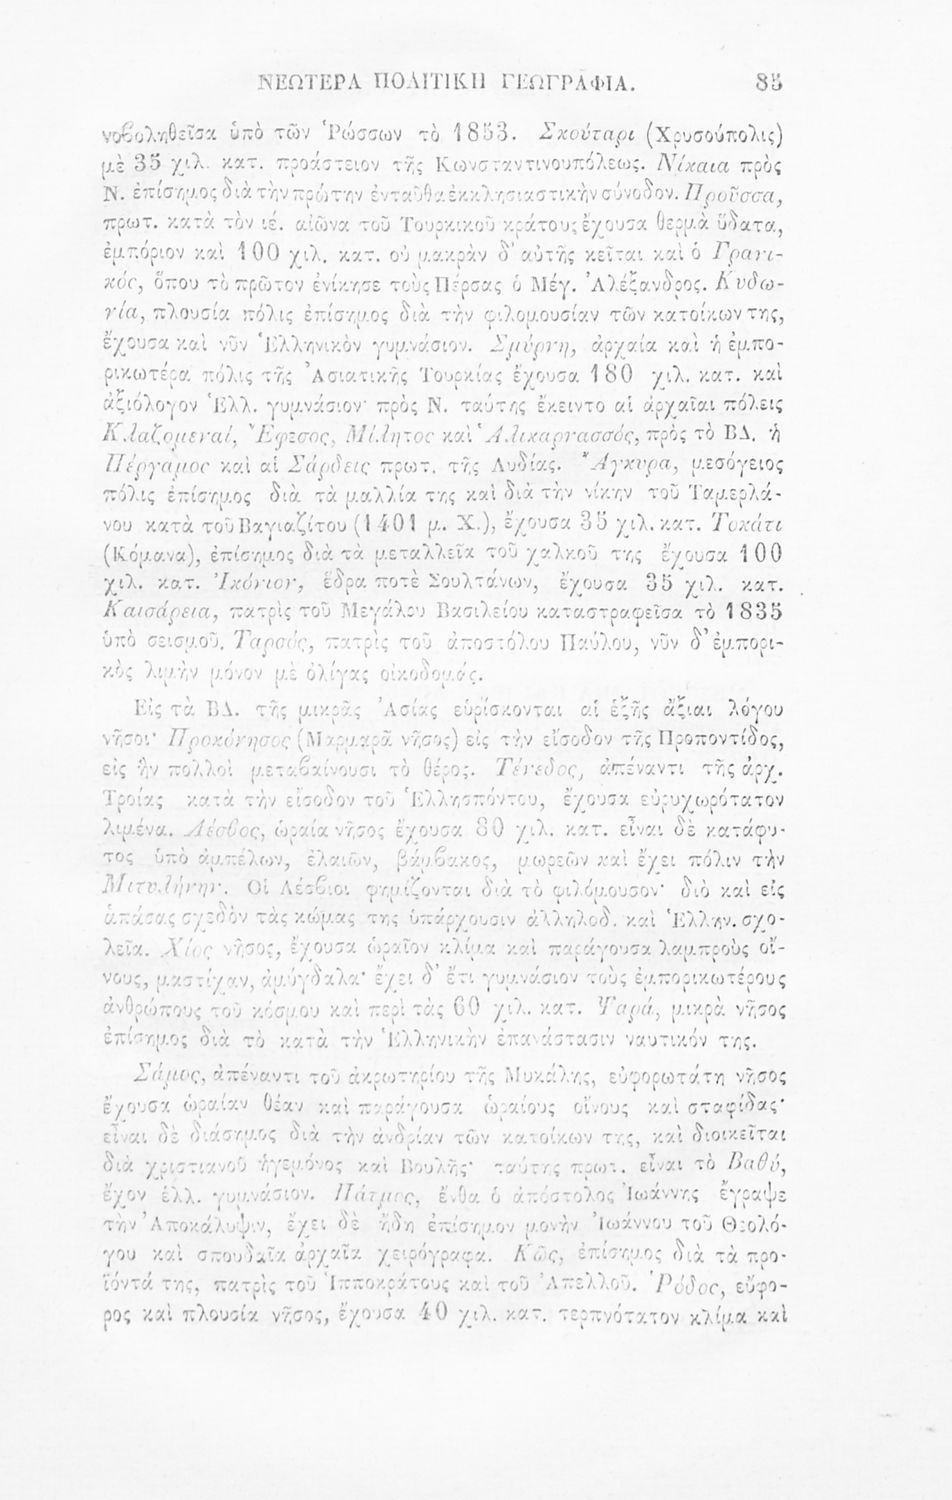 ΝΕΩΤΕΡΑ ΠΟΛΙΤΙΚΗ ΓΕΩΓΡΑΦΙΑ. 85
νοβοληθεῖσα ὑπὸ τῶν Ῥώσσων τὸ 1853. Σκούταρι (Χρυσούπολις)
μὲ 35 χιλ. κατ. προάστειον τῆς Κωνσταντινουπόλεως. Νίκαια πρὸς
Ν. ἐπίσημος διὰ τὴν πρώτην ἐνταῦθα ἐκκλησιαστικὴν σύνοδον. Προῦσσα,
πρωτ. κατὰ τὸν ιέ. αἰῶνα τοῦ Τουρκικοῦ κράτους ἔχουσα θερμὰ ὕδατα,
ἐμπόριον καὶ 100 χιλ. κατ. οὐ μακρὰν δ' αὐτῆς κεῖται καὶ ὁ Γρανι-
κός, ὅπου τὸ πρῶτον ἐνίκησε τοὺς Πέρσας ὁ Μέγ. Ἀλέξανδρος. Κυδω-
νία, πλουσία πόλις ἐπίσημος διὰ τὴν φιλομουσίαν τῶν κατοίκων της,
ἔχουσα καὶ νῦν Ἑλληνικὸν γυμνάσιον. Σμύρνη, ἀρχαία καὶ ἡ ἐμπο-
ρικωτέρα πόλις τῆς Ἀσιατικῆς Τουρκίας ἔχουσα 180 χιλ. κατ. καὶ
ἀξιόλογον Ἑλλ. γυμνάσιον· πρὸς Ν. ταύτης ἔκειντο αἱ ἀρχαῖαι πόλεις
Κλαζομεναί, Ἔφεσος, Μίλητος καὶ Ἁλικαρνασσός, πρὸς τὸ ΒΔ. ἡ
Πέργαμος καὶ αἱ Σάρδεις πρωτ. τῆς Λυδίας. Ἄγκυρα, μεσόγειος
πόλις ἐπίσημος διὰ τὰ μαλλία της καὶ διὰ τὴν νίκην τοῦ Ταμερλά-
νου κατὰ τοῦ Βαγιαζίτου (1401 μ. Χ.), ἔχουσα 35 χιλ. κατ. Τοκάτι
(Κόμανα), ἐπίσημος διὰ τὰ μεταλλεῖα τοῦ χαλκοῦ της ἔχουσα 100
χιλ. κατ. Ἰκόνιον, ἕδρα ποτὲ Σουλτάνων, ἔχουσα 35 χιλ. κατ.
Καισάρεια, πατρὶς τοῦ Μεγάλου Βασιλείου καταστραφεῖσα τὸ 1835
ὑπὸ σεισμοῦ. Ταρσός, πατρὶς τοῦ ἀποστόλου Παύλου, νῦν δ' ἐμπορι-
κὸς λιμὴν μόνον μὲ ὀλίγας οἰκοδομάς.
Εἰς τὰ ΒΔ. τῆς μικρᾶς Ἀσίας εὑρίσκονται αἱ ἑξῆς ἄξιαι λόγου
νῆσοι· Προκόνησος (Μαρμαρᾶ νῆσος) εἰς τὴν εἴσοδον τῆς Προποντίδος,
εἰς ἣν πολλοὶ μεταβαίνουσι τὸ θέρος. Τένεδος, ἀπέναντι τῆς ἀρχ.
Τροίας κατὰ τὴν εἴσοδον τοῦ Ἑλλησπόντου, ἔχουσα εὐρυχωρότατον
λιμένα. Λέσβος, ὡραία νῆσος ἔχουσα 80 χιλ. κατ. εἶναι δὲ κατάφυ-
τος ὑπὸ ἀμπέλων, ἐλαιῶν, βάμβακος, μωρεῶν καὶ ἔχει πόλιν τὴν
Μιτυλήνην. Οἱ Λέσβιοι φημίζονται διὰ τὸ φιλόμουσον· διὸ καὶ εἰς
ἁπάσας σχεδὸν τὰς κώμας της ὑπάρχουσιν ἀλληλοδ. καὶ Ἑλλην. σχο-
λεῖα. Χίος νῆσος, ἔχουσα ὡραῖον κλίμα καὶ παράγουσα λαμπροὺς οἴ-
νους, μαστίχαν, ἀμύγδαλα· ἔχει δ' ἔτι γυμνάσιον τοὺς ἐμπορικωτέρους
ἀνθρώπους τοῦ κόσμου καὶ περὶ τὰς 60 χιλ. κατ. Ψαρά, μικρὰ νῆσος
ἐπίσημος διὰ τὸ κατὰ τὴν Ἑλληνικὴν ἐπανάστασιν ναυτικόν της.
Σάμος, ἀπέναντι τοῦ ἀκρωτηρίου τῆς Μυκάλης, εὐφορωτάτη νῆσος
ἔχουσα ὡραίαν θέαν καὶ παράγουσα ὡραίους οἴνους καὶ σταφίδας·
εἶναι δὲ διάσημος διὰ τὴν ἀνδρίαν τῶν κατοίκων της, καὶ διοικεῖται
διὰ χριστιανοῦ ἡγεμόνος καὶ Βουλῆς· ταύτης πρωτ. εἶναι τὸ Βαθύ,
ἔχον ἑλλ. γυμνάσιον. Πάτμος, ἔνθα ὁ ἀπόστολος Ἰωάννης ἔγραψε
τὴν Ἀποκάλυψιν, ἔχει δὲ ἤδη ἐπίσημον μονὴν Ἰωάννου τοῦ Θεολό-
γου καὶ σπουδαῖα ἀρχαῖα χειρόγραφα. Κῶς, ἐπίσημος διὰ τὰ προ-
ϊόντά της, πατρὶς τοῦ Ἱπποκράτους καὶ τοῦ Ἀπελλοῦ. Ῥόδος, εὔφο-
ρος καὶ πλουσία νῆσος, ἔχουσα 40 χιλ. κατ. τερπνότατον κλίμα καὶ